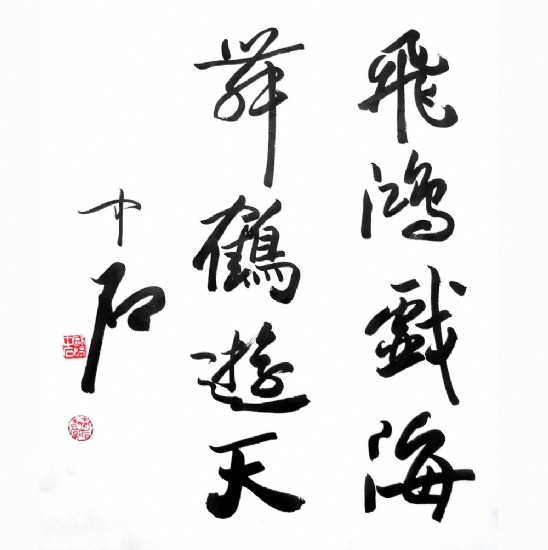 飛鴻戲海
舞鶴遊天
中石